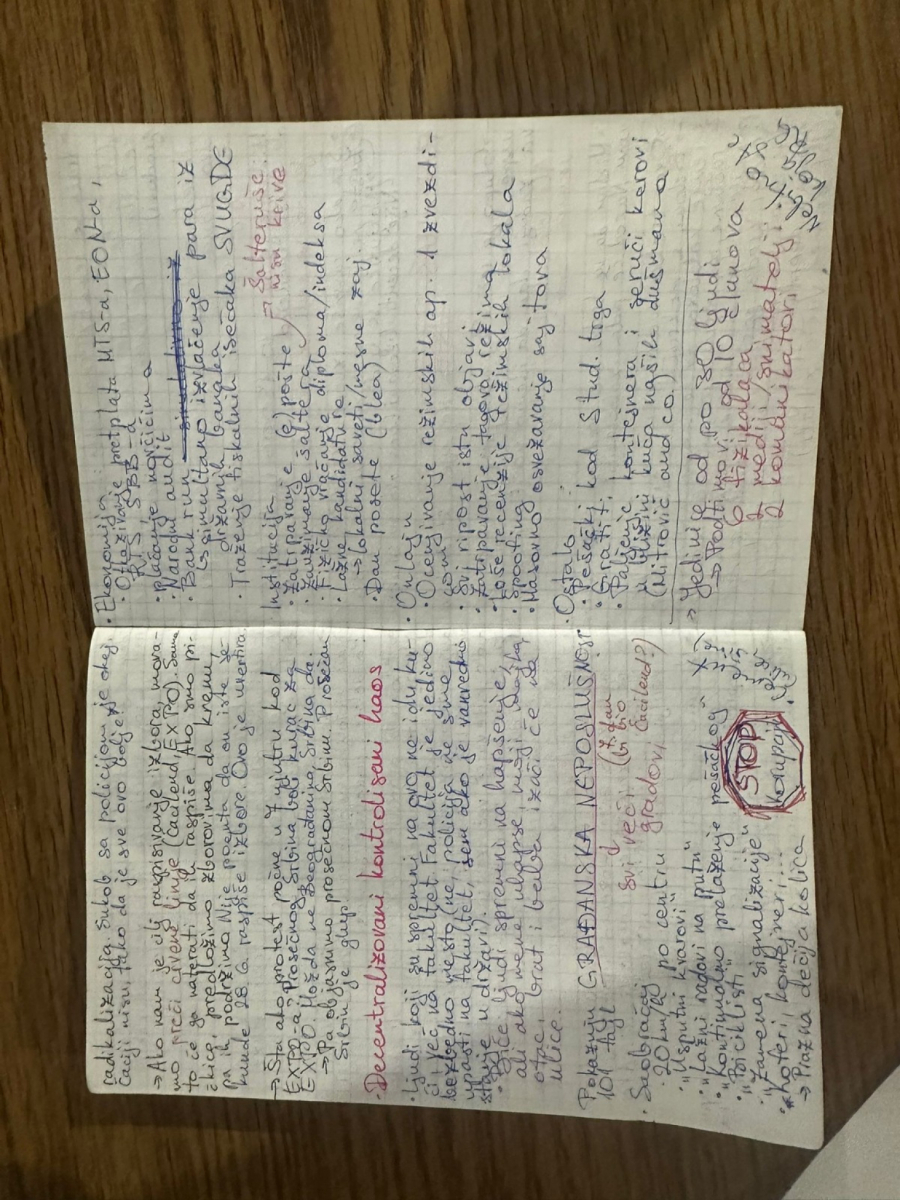 radikalizacija. Sukob sa policijom je okej,
čaciji nisu, tako da je sve ovo bolje?
→ Ako nam je cilj raspisivanje izbora, mora-
mo preći crvene linije (Ćacilend, EXPO). Samo
to će ga naterati da ih raspiše. Ako smo pi-
čkice, predložimo zborovima da krenu,
pa ih podržimo. Nije poenta da on iste se-
kunde 28.6. raspiše izbore. Ovo je uvertira.
→ Šta ako protest počne u 7 ujutru kod
EXPO-a? Prosečnog Srbina boli kurac za
EXPO. Možda ne Beograđanina, Srbina da.
→ Pa objasnimo prosečnom Srbinu. Prosečan
Srbin je glup.
Decentralizovani kontrolisani haos
• Ljudi koji su spremni na ovo ne idu ku-
ći već na fakultet. Fakultet je jedino
bezbedno mesto (ne, policija ne sme
upasti na fakultet, sem ako je vanredno
stanje u državi).
• Biće ljudi spremni na hapšenje,
ali ako mene uhapse, moji majka,
otac, brat i baba izaći će na
ulice.
Pokazuju GRAĐANSKA NEPOSLUŠNOST
101 taj
↓
svi veći
gradovi
(7. dan
bi bio
Ćacilend?)
• Saobraćaj
20km/č po centru
"Usputni kvarovi"
"Lažni radovi na putu"
"Kontinuirano prelaženje pešačkog"
"Biciklisti"
"Zamena signalizacije"
"Koferi, kontejneri...
→ Plažna dečija kolica
STOP
korupciji
• Ekonomija
• Otkazivanje pretplata MTS-a, EON-a,
RTS, SBB-a
• Plaćanje novčićima
• Narodni audit
• Bank run
↳ simultano izvlačenje para iz
državnih banaka
• Traženje fiskalnih isečaka SVUGDE
Institucija
• Zatrpavanje (e)pošte
• Zauzimanje saltera
→ Šalteruše
nisu krive
• Fizičko vraćanje diploma/indeksa
• Lažne kandidature
→ lokalni saveti/mesne zaj.
• Dan posete (blea)
Onlajn
• Ocenjivanje režimskih ap. 1 zvezdi-
com
• Svi ripost istu objavu
• Zatrpavanje tagovo režima
• Loše recenzije režimskih lokala
• Spoofing
• Masovno osvežavanje sajtova
Ostalo
• Pešački kod Stud. trga
• Grafiti
• Paljenje kontejnera i
u blizini kuća naših dušmana
(Mitrović and co.)
→ Jedinice od po 30 ljudi
→ Podtimovi od 10 članova
6 fizikalaca
2 mediji/snimatelji
2 komunikatori